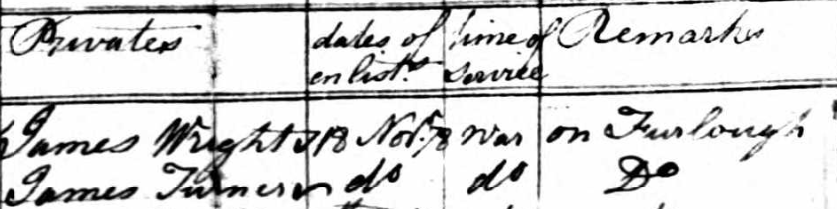 Privates dates of time of Remarks
enlistt. service
James Wright 18 Novr. 78 War on Furlough
James Turner do do Do